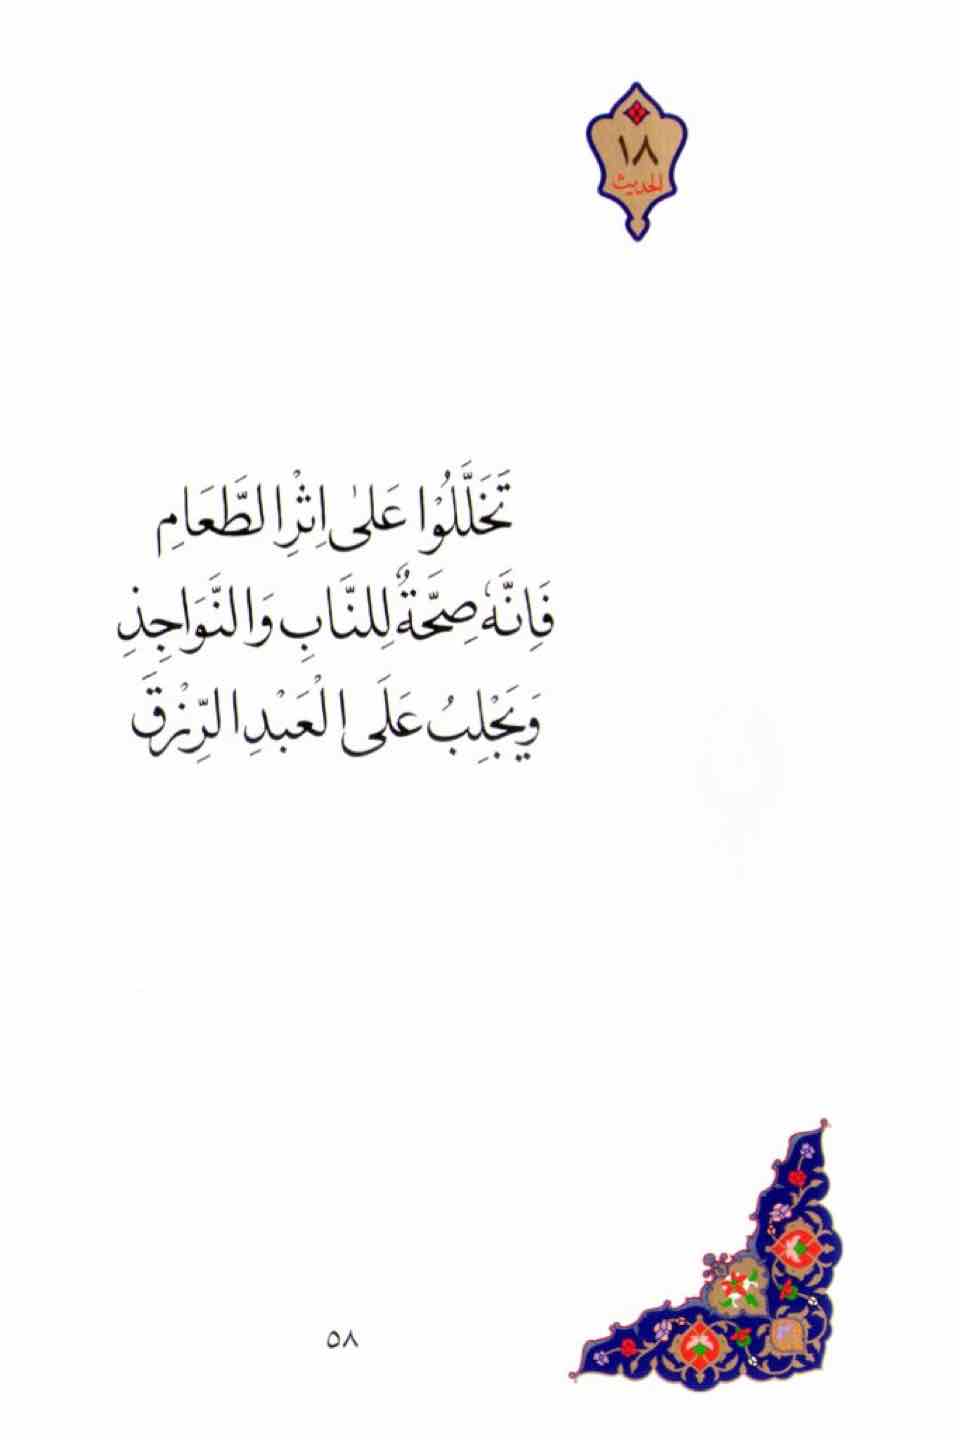 ١٨
الحديث
تَخَلَّلُوْا عَلىٰ اِثْرِ الطَّعَامِ
فَاِنَّهٗ صِحَّةٌ لِلنَّابِ وَالنَّوَاجِذِ
وَيَجْلِبُ عَلَى الْعَبْدِ الرِّزْقَ
٥٨